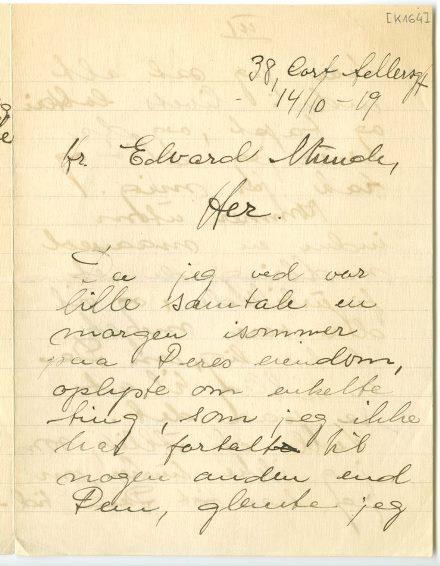 [K 164]
III
38, Cort Adlersgt
14/10 - 19
Hr. Edvard Munch,
Her.
Da jeg ved vor
lille samtale en
morgen isommer
paa Deres eiendom,
oplyste om enkelte
ting, som jeg ikke
har fortalt til
nogen anden end
Dem, glemte jeg